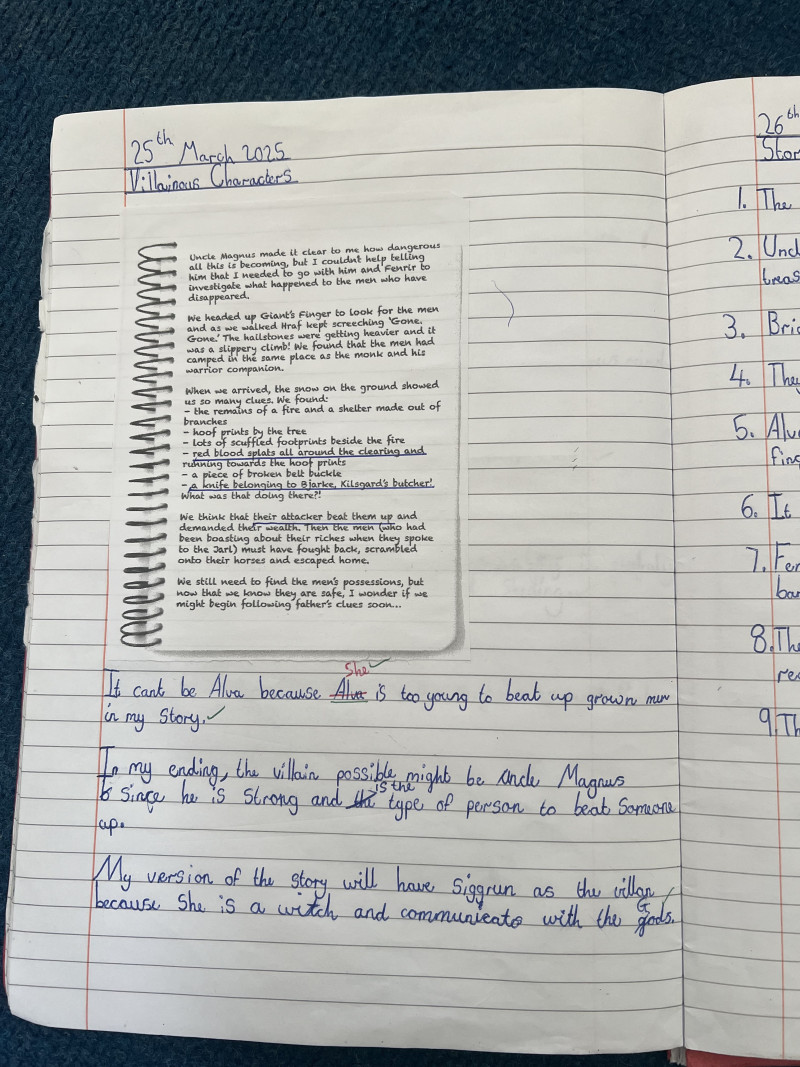 25th March 2025
Villainous Characters
Uncle Magnus made it clear to me how dangerous
all this is becoming, but I couldnt help telling
him that I needed to go with him and Fenrir to
investigate what happened to the men who have
disappeared.
We headed up Giant's Finger to look for the men
and as we walked Hraf kept screeching 'Gone.
Gone.' The hailstones were getting heavier and it
was a slippery climb! We found that the men had
camped in the same place as the monk and his
warrior companion.
When we arrived, the snow on the ground showed
us so many clues. We found:
- the remains of a fire and a shelter made out of
branches
- hoof prints by the tree
- lots of scuffled footprints beside the fire
- red blood splats all around the clearing and
running towards the hoof prints
- a piece of broken belt buckle
- a knife belonging to Bjarke, Kilsgard's butcher!
What was that doing there?!
We think that their attacker beat them up and
demanded their wealth. Then the men (who had
been boasting about their riches when they spoke
to the Jarl) must have fought back, scrambled
onto their horses and escaped home.
We still need to find the men's possessions, but
now that we know they are safe, I wonder if we
might begin following father's clues soon...
She
It cant be Alva because Alva is too young to beat up grown men
in my Story.
In my ending, the villain possible might be Uncle Magnus
is the
Since he is Strong and the type of person to beat Someone
up.
My version of the story will have Siggrun as the villan
because She is a witch and communicate with the Gods.
26th
Stor
1. The
2. Unc
treas
3. Bri
4. They
5. Alv
fin
6. It
7. Fen
ba
8. The
re
9. Th